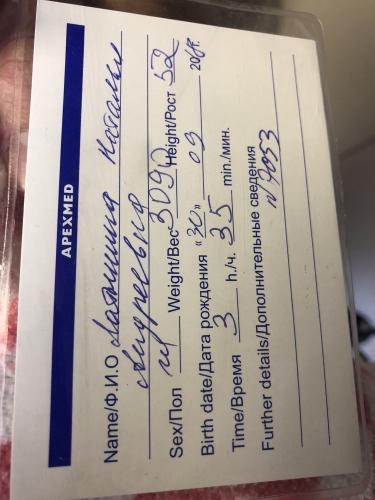 APEXMED
Name/Ф.И.О Латышина Наталья
Андреевна
Sex/Пол м Weight/Вес 3090 Height/Рост 52
Birth date/Дата рождения "30" 09 20 г.
Time/Время 3 h./ч. 35 min./мин.
Further details/Дополнительные сведения
№ 7053